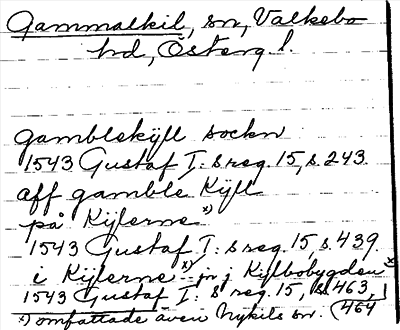 Gammalkil, sn, Valkebo
hd, Österg. l.
gamblekÿll sockn
1543 Gustaf I:s reg. 15, s. 243.
aff gamble Kÿll
på Kijlerne x)
1543 Gustaf I:s reg. 15, s. 439
i Kijlerne x) jn j Kijlbobygden x)
1543 Gustaf I:s reg. 15, s. 463, 464
x) omfattade även Nykils sn.